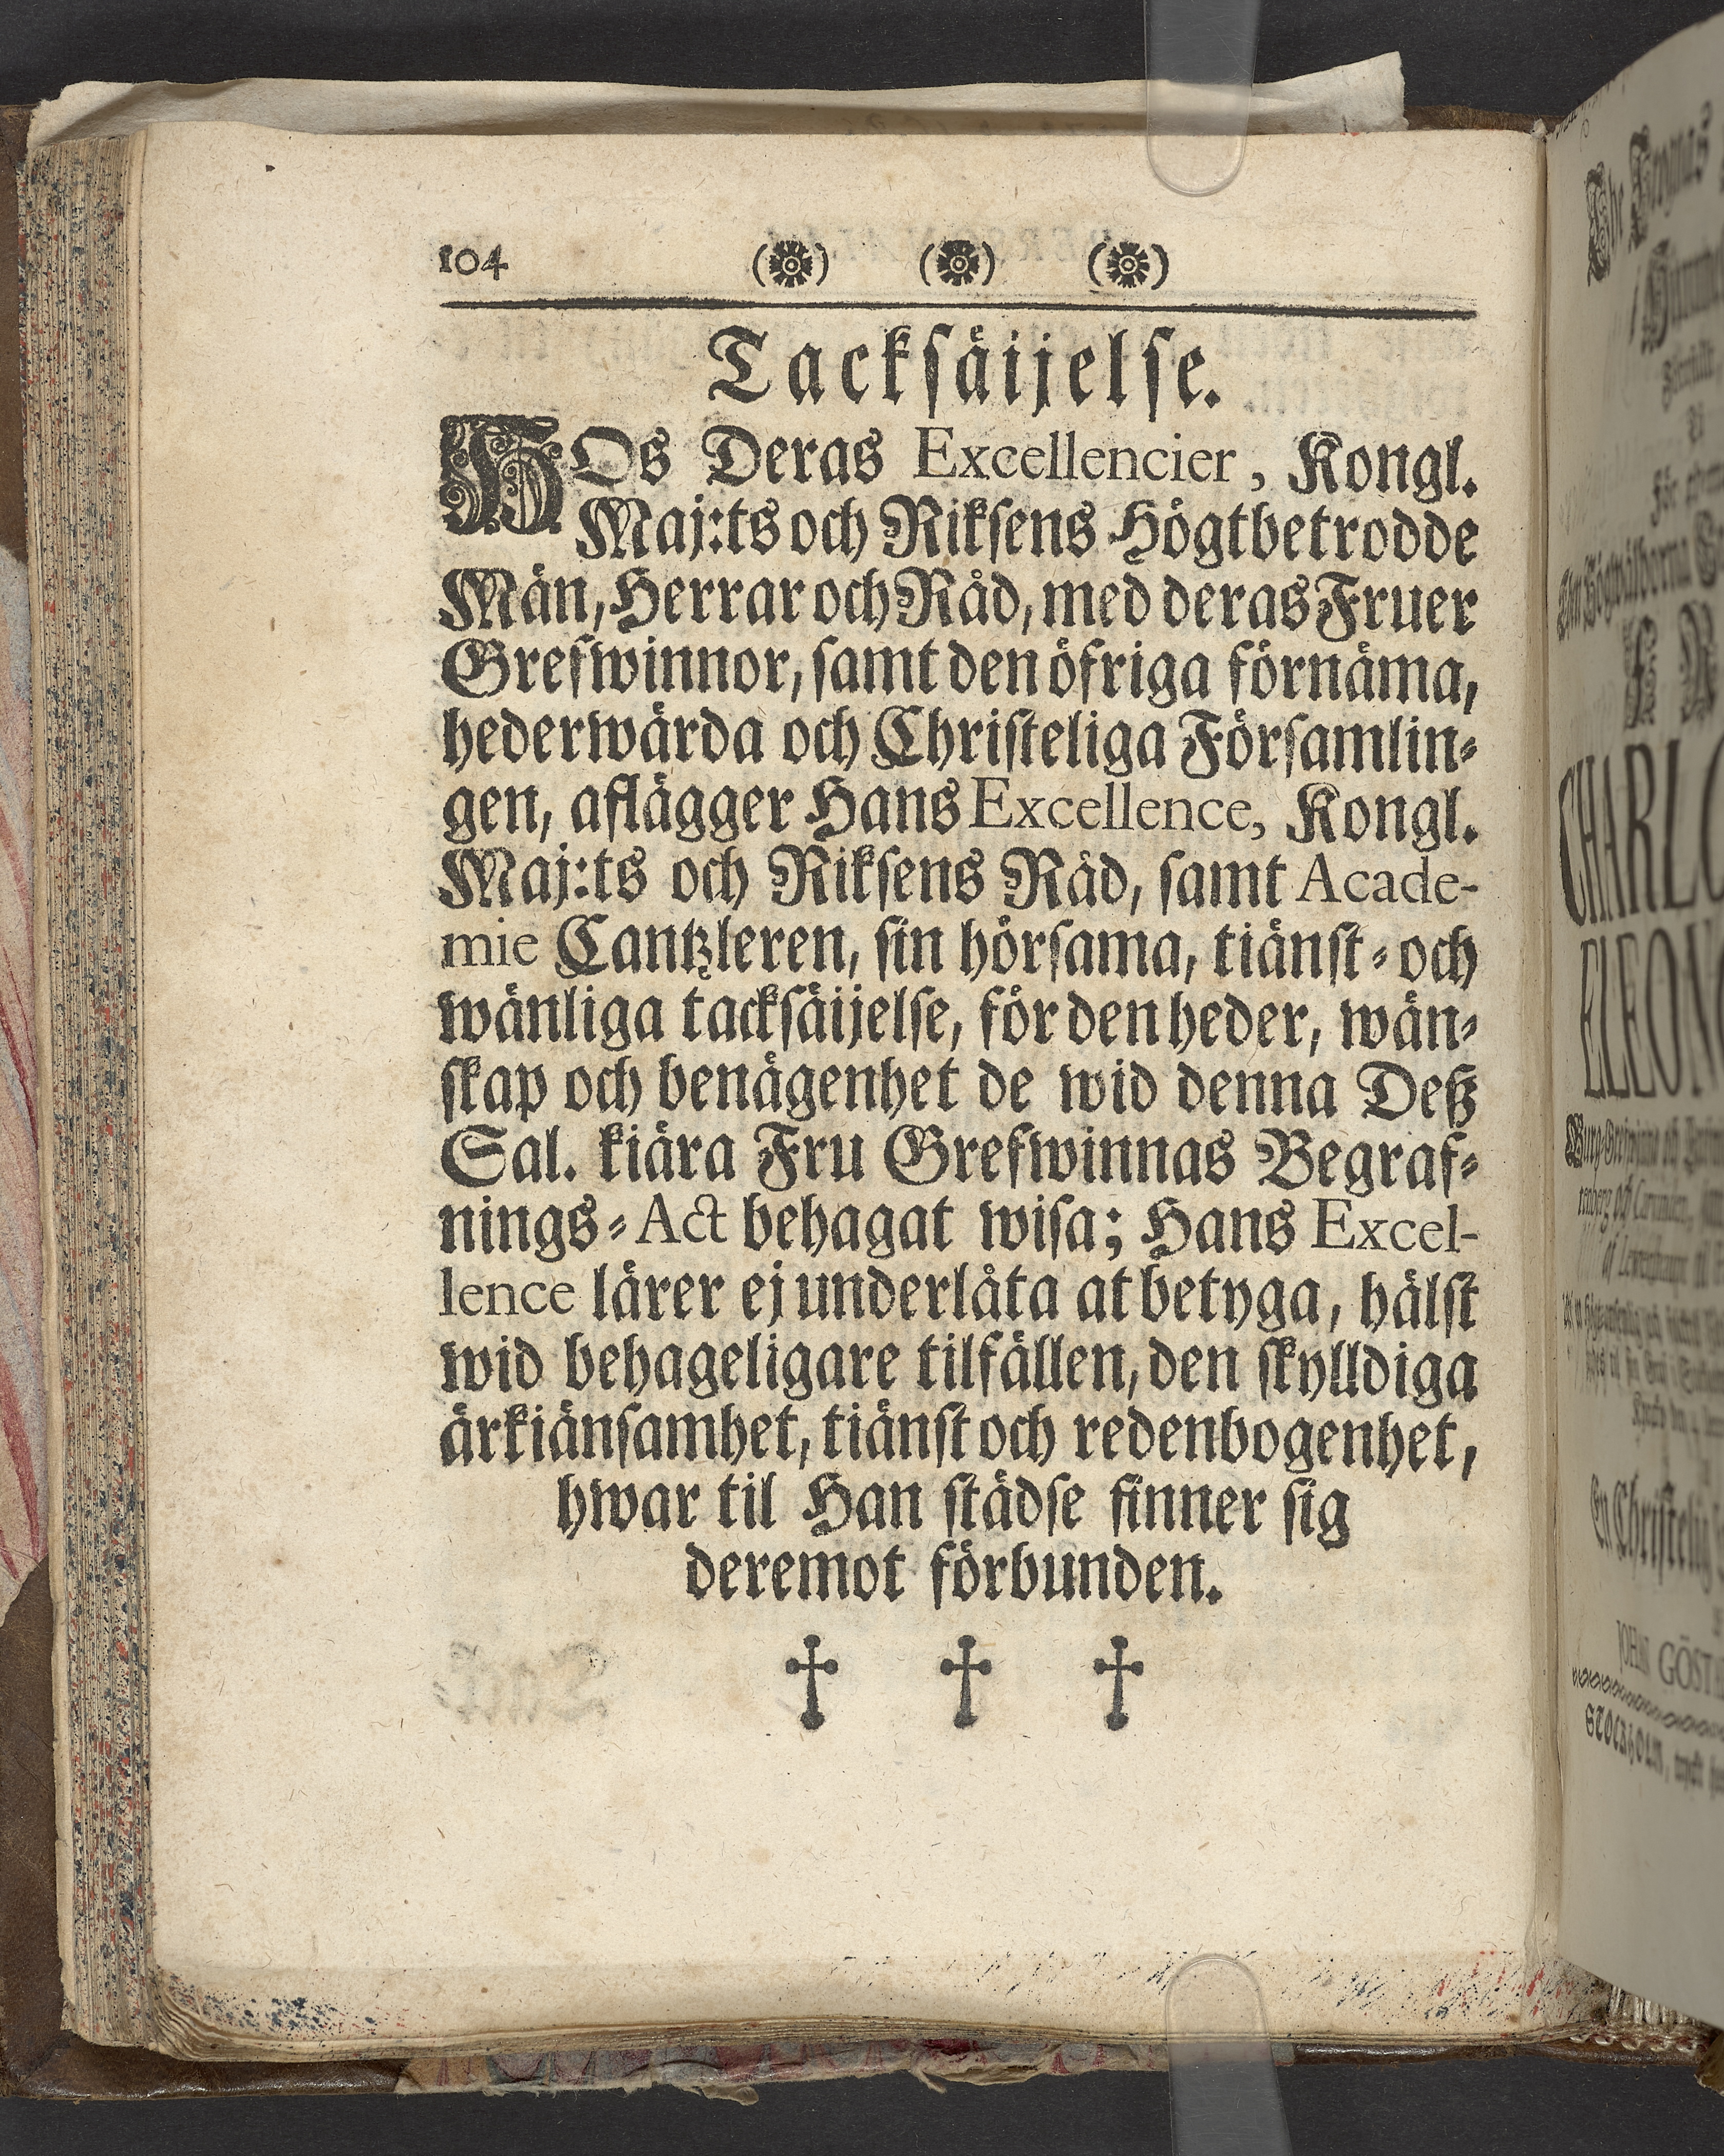 104 (❁) (❁) (❁)
Tacksäijelse.
HOs Deras Excellencier, Kongl.
Maj:ts och Riksens Högtbetrodde
Män, Herrar och Råd, med deras Fruer
Grefwinnor, samt den öfriga förnäma,
hederwärda och Christeliga Församlin-
gen, aflägger Hans Excellence, Kongl.
Maj:ts och Riksens Råd, samt Acade-
mie Cantzleren, sin hörsama, tiänst- och
wänliga tacksäijelse, för den heder, wän-
skap och benägenhet de wid denna Deß
Sal. kiära Fru Grefwinnas Begraf-
nings-Act behagat wisa; Hans Excel-
lence lärer ej underlåta at betyga, hälst
wid behageligare tilfällen, den skylldiga
ärkiänsamhet, tiänst och redenbogenhet,
hwar til Han städse finner sig
deremot förbunden.
† † †
CHARLO
ELEONO
En Christelig
JOHAN GÖST
STOCKHOLM,